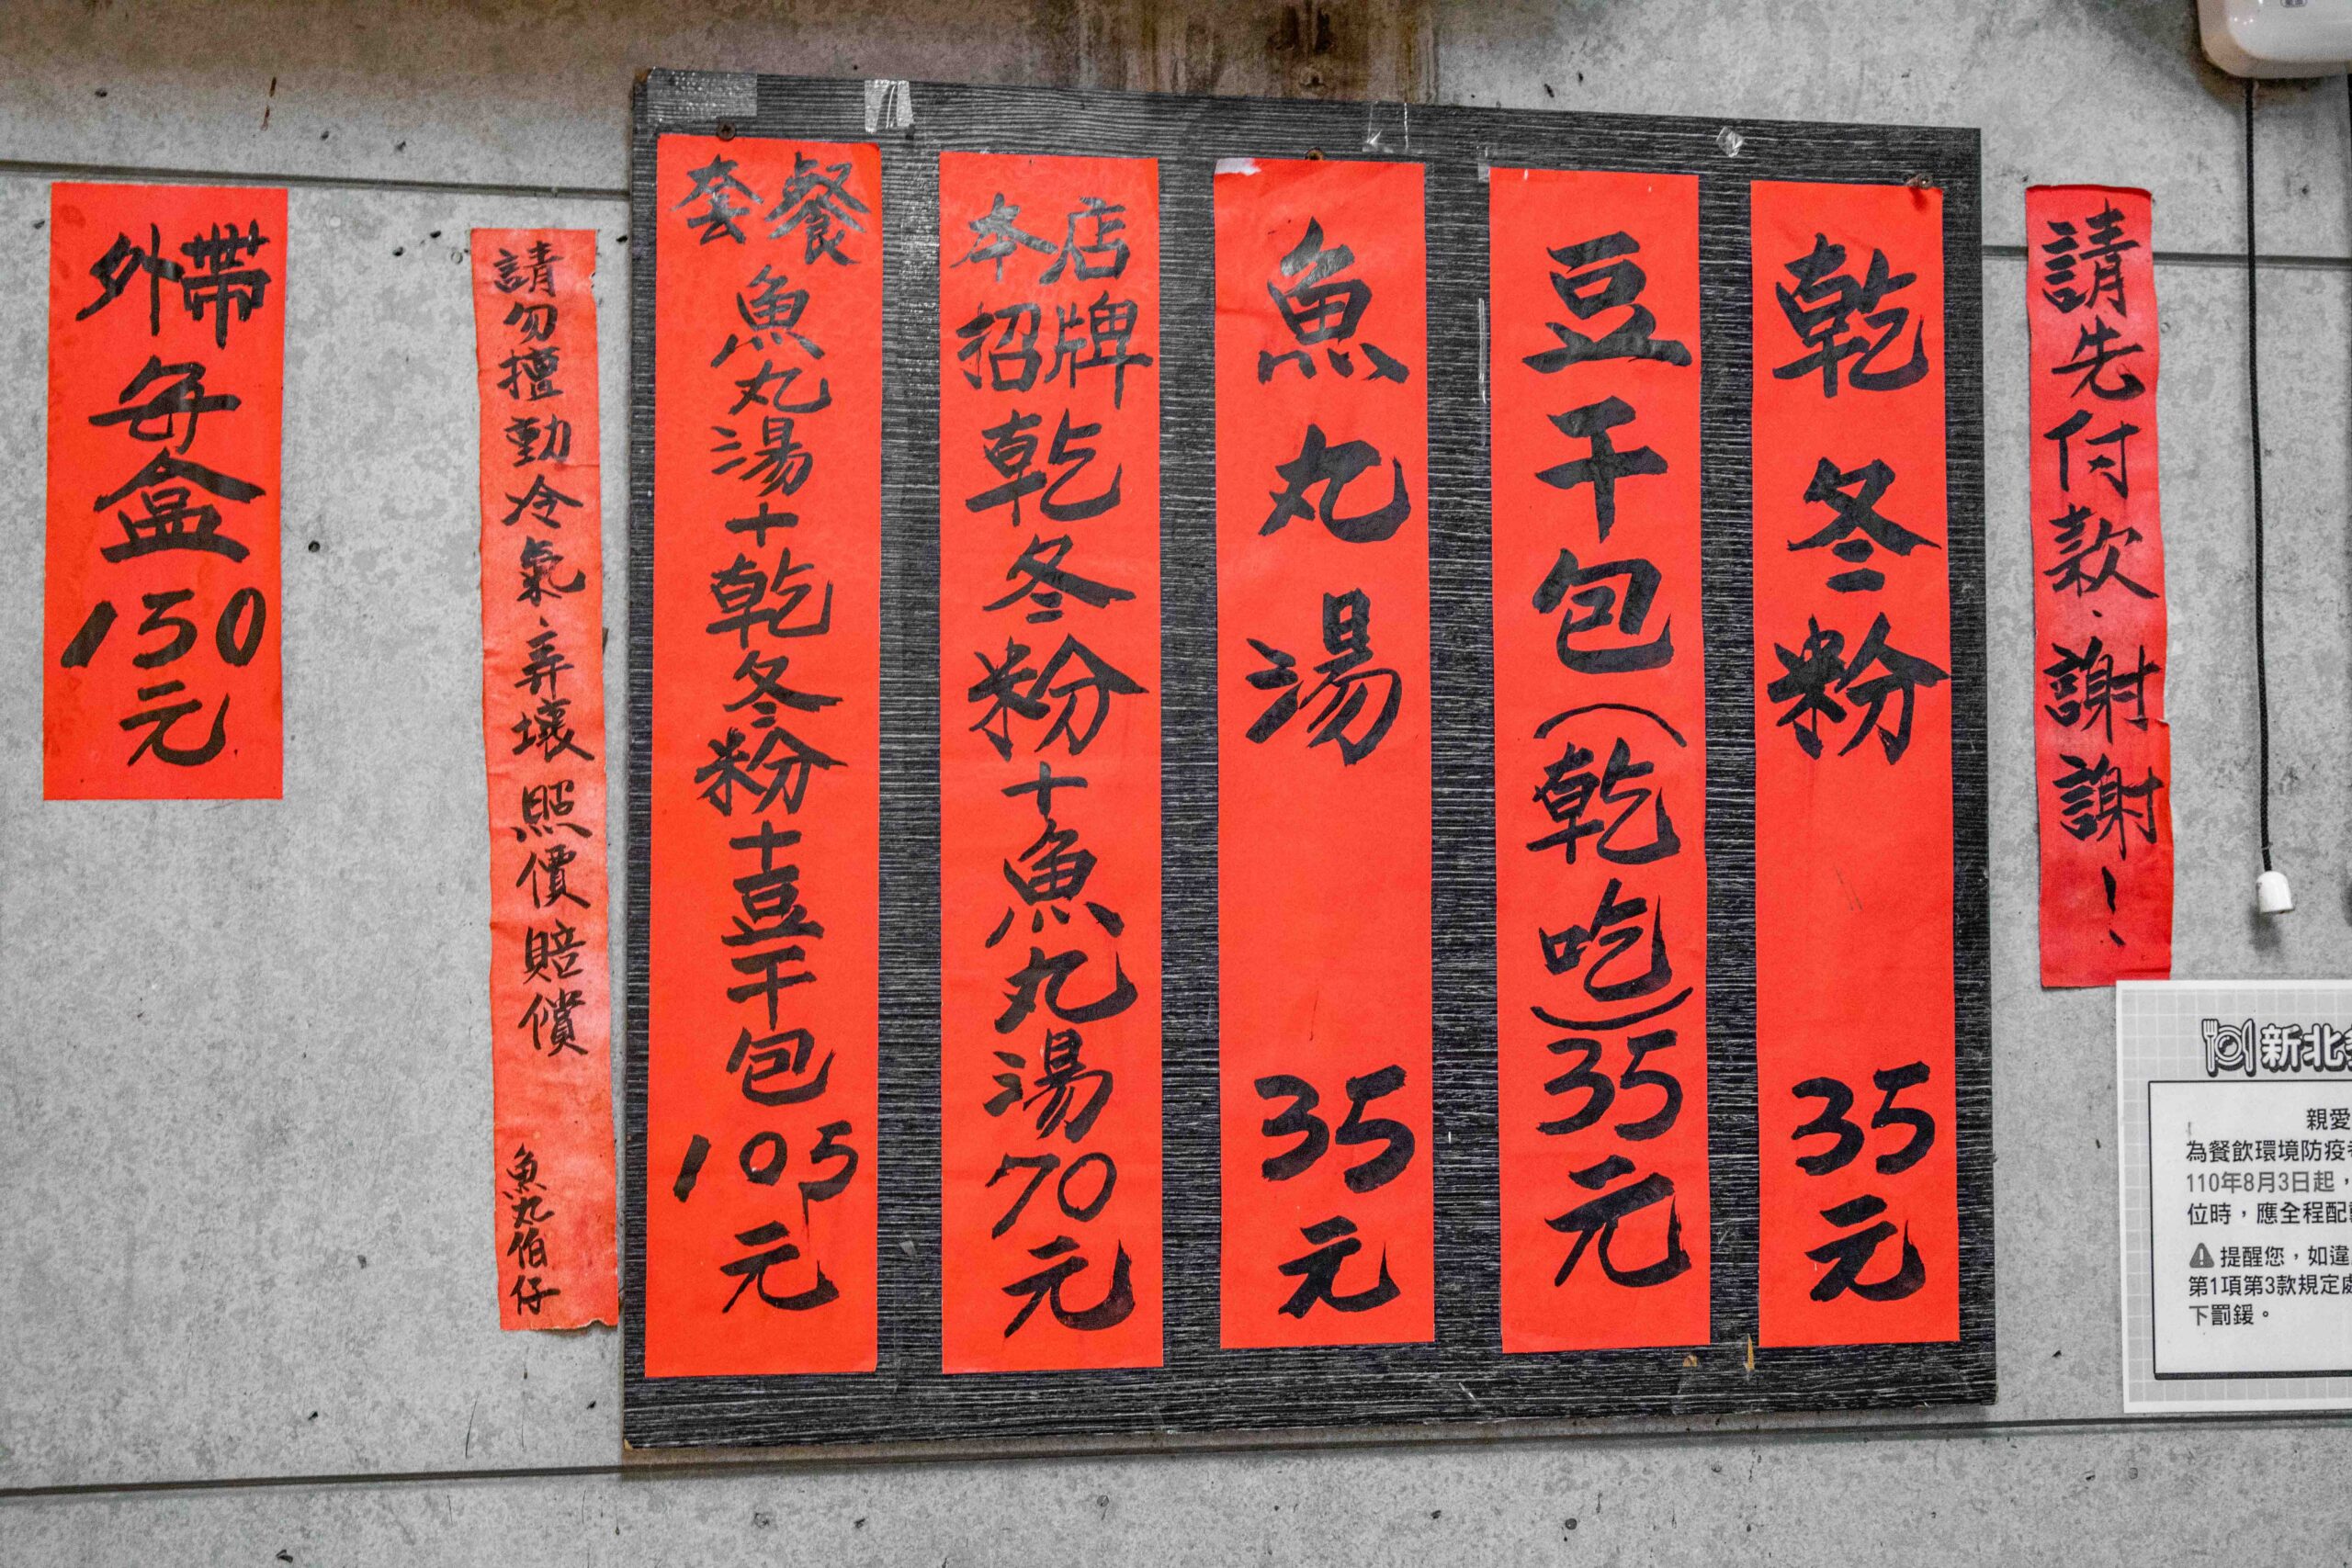 請先付款、謝謝!
乾冬粉 35元
豆干包(乾吃)35元
魚丸湯 35元
本店招牌乾冬粉+魚丸湯70元
套餐魚丸湯+乾冬粉+豆干包105元
請勿擅動冷氣、弄壞照價賠償 魚丸伯仔
外帶每盒150元
新北
親愛
為餐飲環境防疫
110年8月3日起,
位時,應全程配
提醒您,如違
第1項第3款規定
下罰鍰。